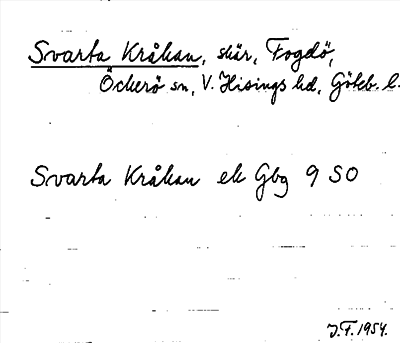 Svarta Kråkan, skär, Fogdö,
Öckerö sn, V. Hisings hd, Göteb. l.
Svarta Kråkan ek Gbg 9 SO
J.F. 1954.